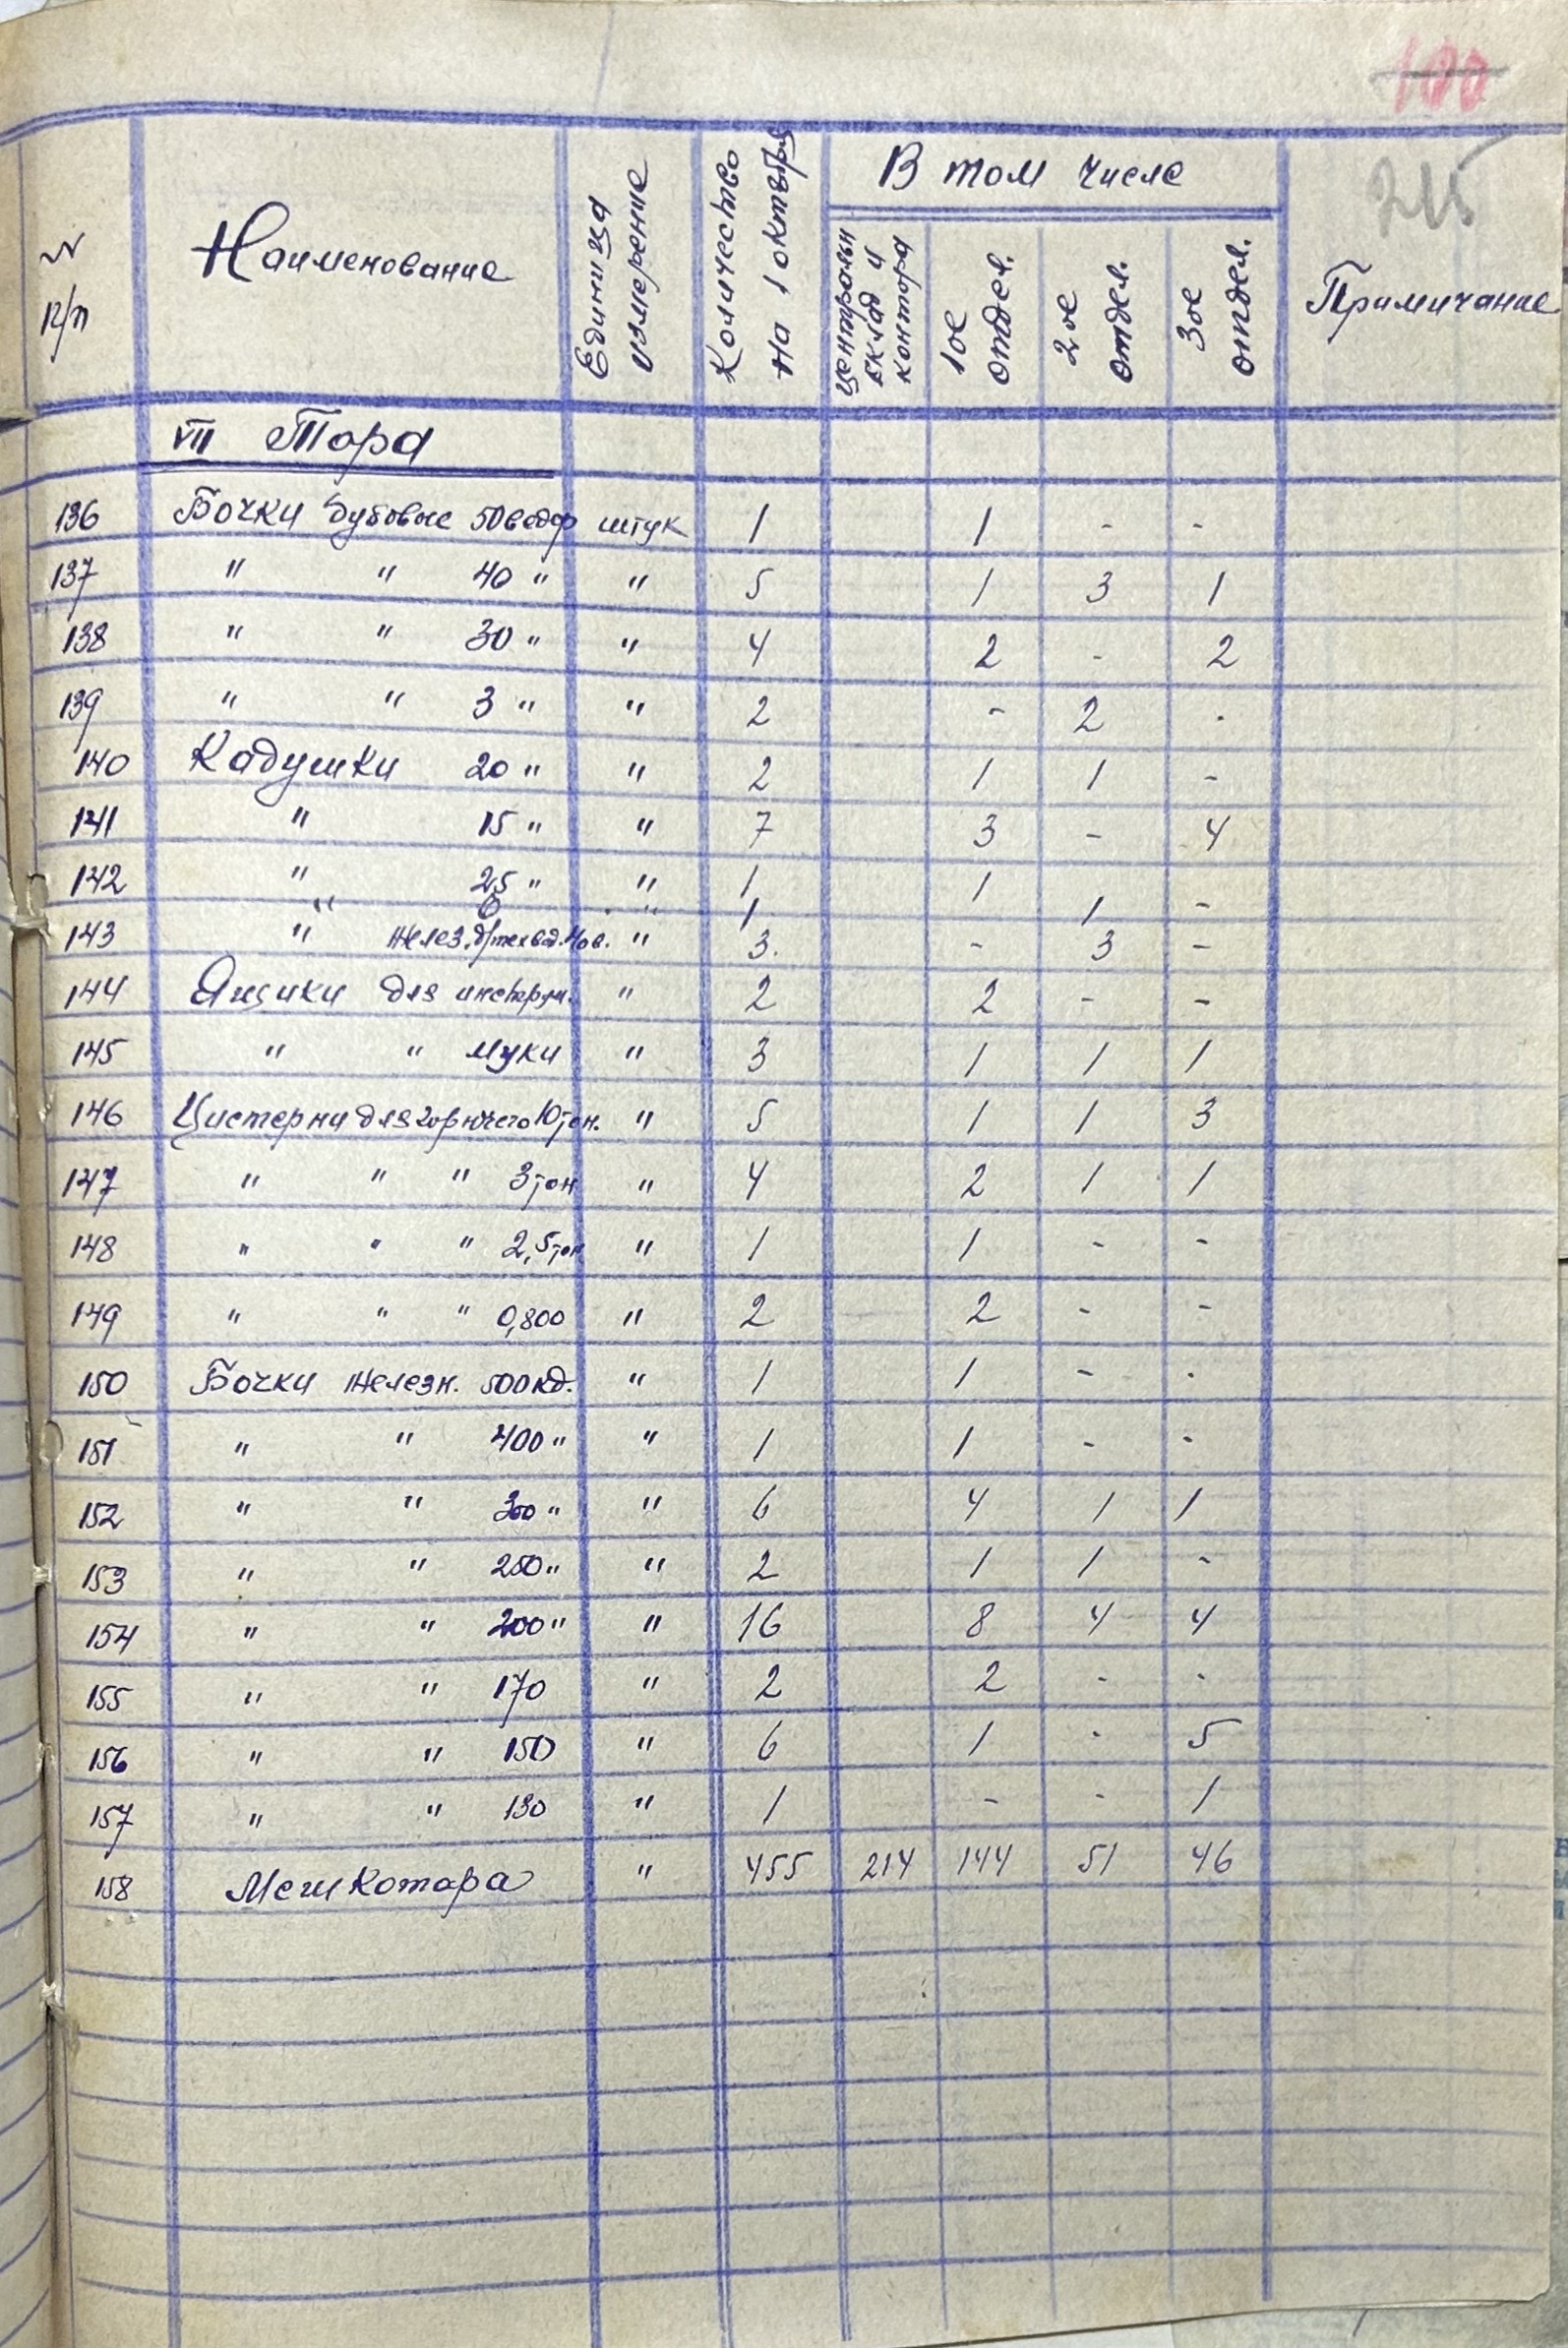 100
215
N п/п Наименование Единица измерение Количество на 1 октября В том числе Примичание
центральн склад и контора 1ое отдел. 2ое отдел. 3ое отдел.
VII Тара
136 Бочки дубовые 50 ведр штук 1 1 - -
137 " " 40 " " 5 1 3 1
138 " " 30 " " 4 2 - 2
139 " " 3 " " 2 - 2 -
140 Кадушки 20 " " 2 1 1 -
141 " 15 " " 7 3 - 4
142 " 25 " " 1 1
" 6 " 1 1 -
143 " желез. д/техвод. 40в. " 3 - 3 -
144 Ящики для инструм. " 2 2 - -
145 " " муки " 3 1 1 1
146 Цистерни для горючего 10 тон. " 5 1 1 3
147 " " " 3 тон " 4 2 1 1
148 " " " 2,5 тон " 1 1 - -
149 " " " 0,800 " 2 2 - -
150 Бочки железн. 500 кд. " 1 1 - -
151 " " 400 " " 1 1 - -
152 " " 300 " " 6 4 1 1
153 " " 250 " " 2 1 1 -
154 " " 200 " " 16 8 4 4
155 " " 170 " 2 2 - -
156 " " 150 " 6 1 - 5
157 " " 130 " 1 - - 1
158 Мешкотара " 455 214 144 51 46